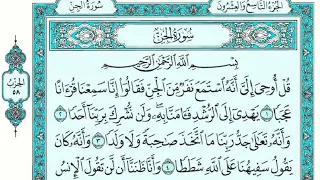 الجُزءُ التَّاسِعُ وَالعِشْرُون سُورَةُ الجِنّ
سُورَةُ الجِنِّ
بِسْمِ ٱللَّهِ ٱلرَّحْمَٰنِ ٱلرَّحِيمِ
قُلْ أُوحِىَ إِلَىَّ أَنَّهُ ٱسْتَمَعَ نَفَرٌ مِّنَ ٱلْجِنِّ فَقَالُوٓا۟ إِنَّا سَمِعْنَا قُرْءَانًا
عَجَبًا ١ يَهْدِىٓ إِلَى ٱلرُّشْدِ فَـَٔامَنَّا بِهِۦ وَلَن نُّشْرِكَ بِرَبِّنَآ أَحَدًا ٢
وَأَنَّهُۥ تَعَٰلَىٰ جَدُّ رَبِّنَا مَا ٱتَّخَذَ صَٰحِبَةً وَلَا وَلَدًا ٣ وَأَنَّهُۥ كَانَ
يَقُولُ سَفِيهُنَا عَلَى ٱللَّهِ شَطَطًا ٤ وَأَنَّا ظَنَنَّآ أَن لَّن تَقُولَ ٱلْإِنسُ
الحِزْب
٥٨